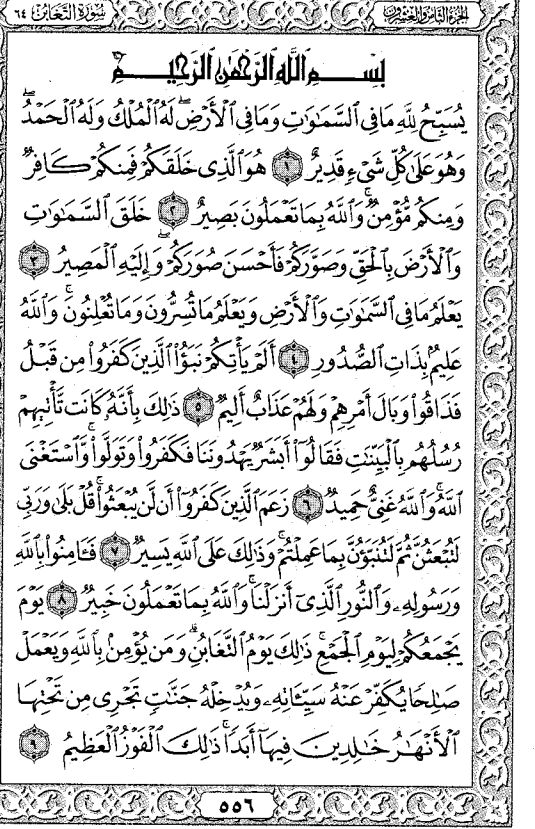 الجزء الثامن والعشرون
سورة التغابن ٦٤
بِسْمِ اللَّهِ الرَّحْمَٰنِ الرَّحِيمِ
يُسَبِّحُ لِلَّهِ مَا فِي السَّمَٰوَٰتِ وَمَا فِي الْأَرْضِ ۖ لَهُ الْمُلْكُ وَلَهُ الْحَمْدُ ۖ
وَهُوَ عَلَىٰ كُلِّ شَيْءٍ قَدِيرٌ ١ هُوَ الَّذِي خَلَقَكُمْ فَمِنكُمْ كَافِرٌ
وَمِنكُم مُّؤْمِنٌ ۚ وَاللَّهُ بِمَا تَعْمَلُونَ بَصِيرٌ ٢ خَلَقَ السَّمَٰوَٰتِ
وَالْأَرْضَ بِالْحَقِّ وَصَوَّرَكُمْ فَأَحْسَنَ صُوَرَكُمْ ۖ وَإِلَيْهِ الْمَصِيرُ ٣
يَعْلَمُ مَا فِي السَّمَٰوَٰتِ وَالْأَرْضِ وَيَعْلَمُ مَا تُسِرُّونَ وَمَا تُعْلِنُونَ ۚ وَاللَّهُ
عَلِيمٌ بِذَاتِ الصُّدُورِ ٤ أَلَمْ يَأْتِكُمْ نَبَؤُا۟ الَّذِينَ كَفَرُوا۟ مِن قَبْلُ
فَذَاقُوا۟ وَبَالَ أَمْرِهِمْ وَلَهُمْ عَذَابٌ أَلِيمٌ ٥ ذَٰلِكَ بِأَنَّهُۥ كَانَت تَّأْتِيهِمْ
رُسُلُهُم بِالْبَيِّنَٰتِ فَقَالُوٓا۟ أَبَشَرٌ يَهْدُونَنَا فَكَفَرُوا۟ وَتَوَلَّوا۟ ۚ وَّاسْتَغْنَى
اللَّهُ ۚ وَاللَّهُ غَنِيٌّ حَمِيدٌ ٦ زَعَمَ الَّذِينَ كَفَرُوٓا۟ أَن لَّن يُبْعَثُوا۟ ۚ قُلْ بَلَىٰ وَرَبِّي
لَتُبْعَثُنَّ ثُمَّ لَتُنَبَّؤُنَّ بِمَا عَمِلْتُمْ ۚ وَذَٰلِكَ عَلَى اللَّهِ يَسِيرٌ ٧ فَـَٔامِنُوا۟ بِاللَّهِ
وَرَسُولِهِۦ وَالنُّورِ الَّذِيٓ أَنزَلْنَا ۚ وَاللَّهُ بِمَا تَعْمَلُونَ خَبِيرٌ ٨ يَوْمَ
يَجْمَعُكُمْ لِيَوْمِ الْجَمْعِ ۖ ذَٰلِكَ يَوْمُ التَّغَابُنِ ۗ وَمَن يُؤْمِنۢ بِاللَّهِ وَيَعْمَلْ
صَٰلِحًا يُكَفِّرْ عَنْهُ سَيِّـَٔاتِهِۦ وَيُدْخِلْهُ جَنَّٰتٍ تَجْرِي مِن تَحْتِهَا
الْأَنْهَٰرُ خَٰلِدِينَ فِيهَآ أَبَدًا ۚ ذَٰلِكَ الْفَوْزُ الْعَظِيمُ ٩
٥٥٦